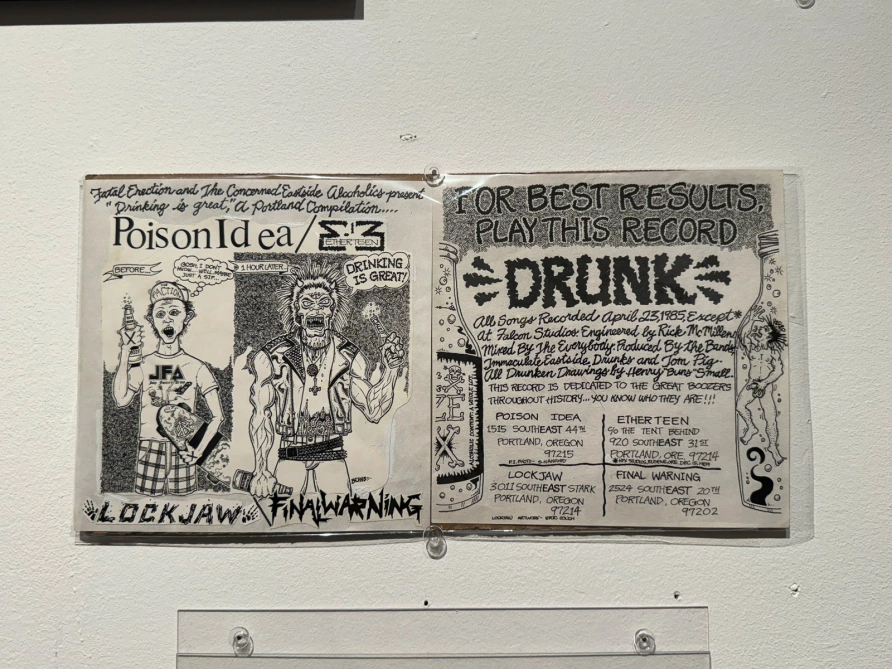 Fatal Erection and The Concerned Eastside Alcoholics present
"Drinking is great," A Portland Compilation....
Poison Idea/
ETHER TEEN
BEFORE...
GOSH, I DON'T
KNOW... WELL, MAYBE
JUST A SIP..
1 HOUR LATER...
DRINKING
IS GREAT!
JFA
BUNS
LOCKJAW
FINAL WARNING
FOR BEST RESULTS,
PLAY THIS RECORD
DRUNK
All Songs Recorded April, 23, 1985, Except*
At Falcon Studios. Engineered by Rick McMillen
Mixed By The Everybody. Produced By The Bands,
Immaculate Eastside Drunks and Tom Pig-
All Drunken Drawings by Henry "Buns" Small.
THIS RECORD IS DEDICATED TO THE GREAT BOOZERS
THROUGHOUT HISTORY... YOU KNOW WHO THEY ARE!!!
POISON IDEA
1515 SOUTHEAST 44TH
PORTLAND, OREGON
97215
ETHER TEEN
% THE TENT BEHIND
920 SOUTHEAST 31ST
PORTLAND, ORE. 97214
LOCKJAW
3011 SOUTHEAST STARK
PORTLAND, OREGON
97214
LOCKJAW ARTWORK-
FINAL WARNING
2524 SOUTHEAST 20TH
PORTLAND, OREGON
97202